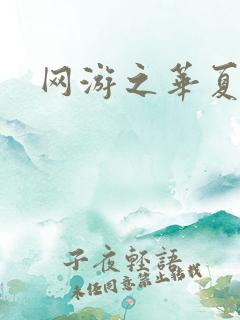 网游之華夏
子夜輕語
未经同意禁止转载